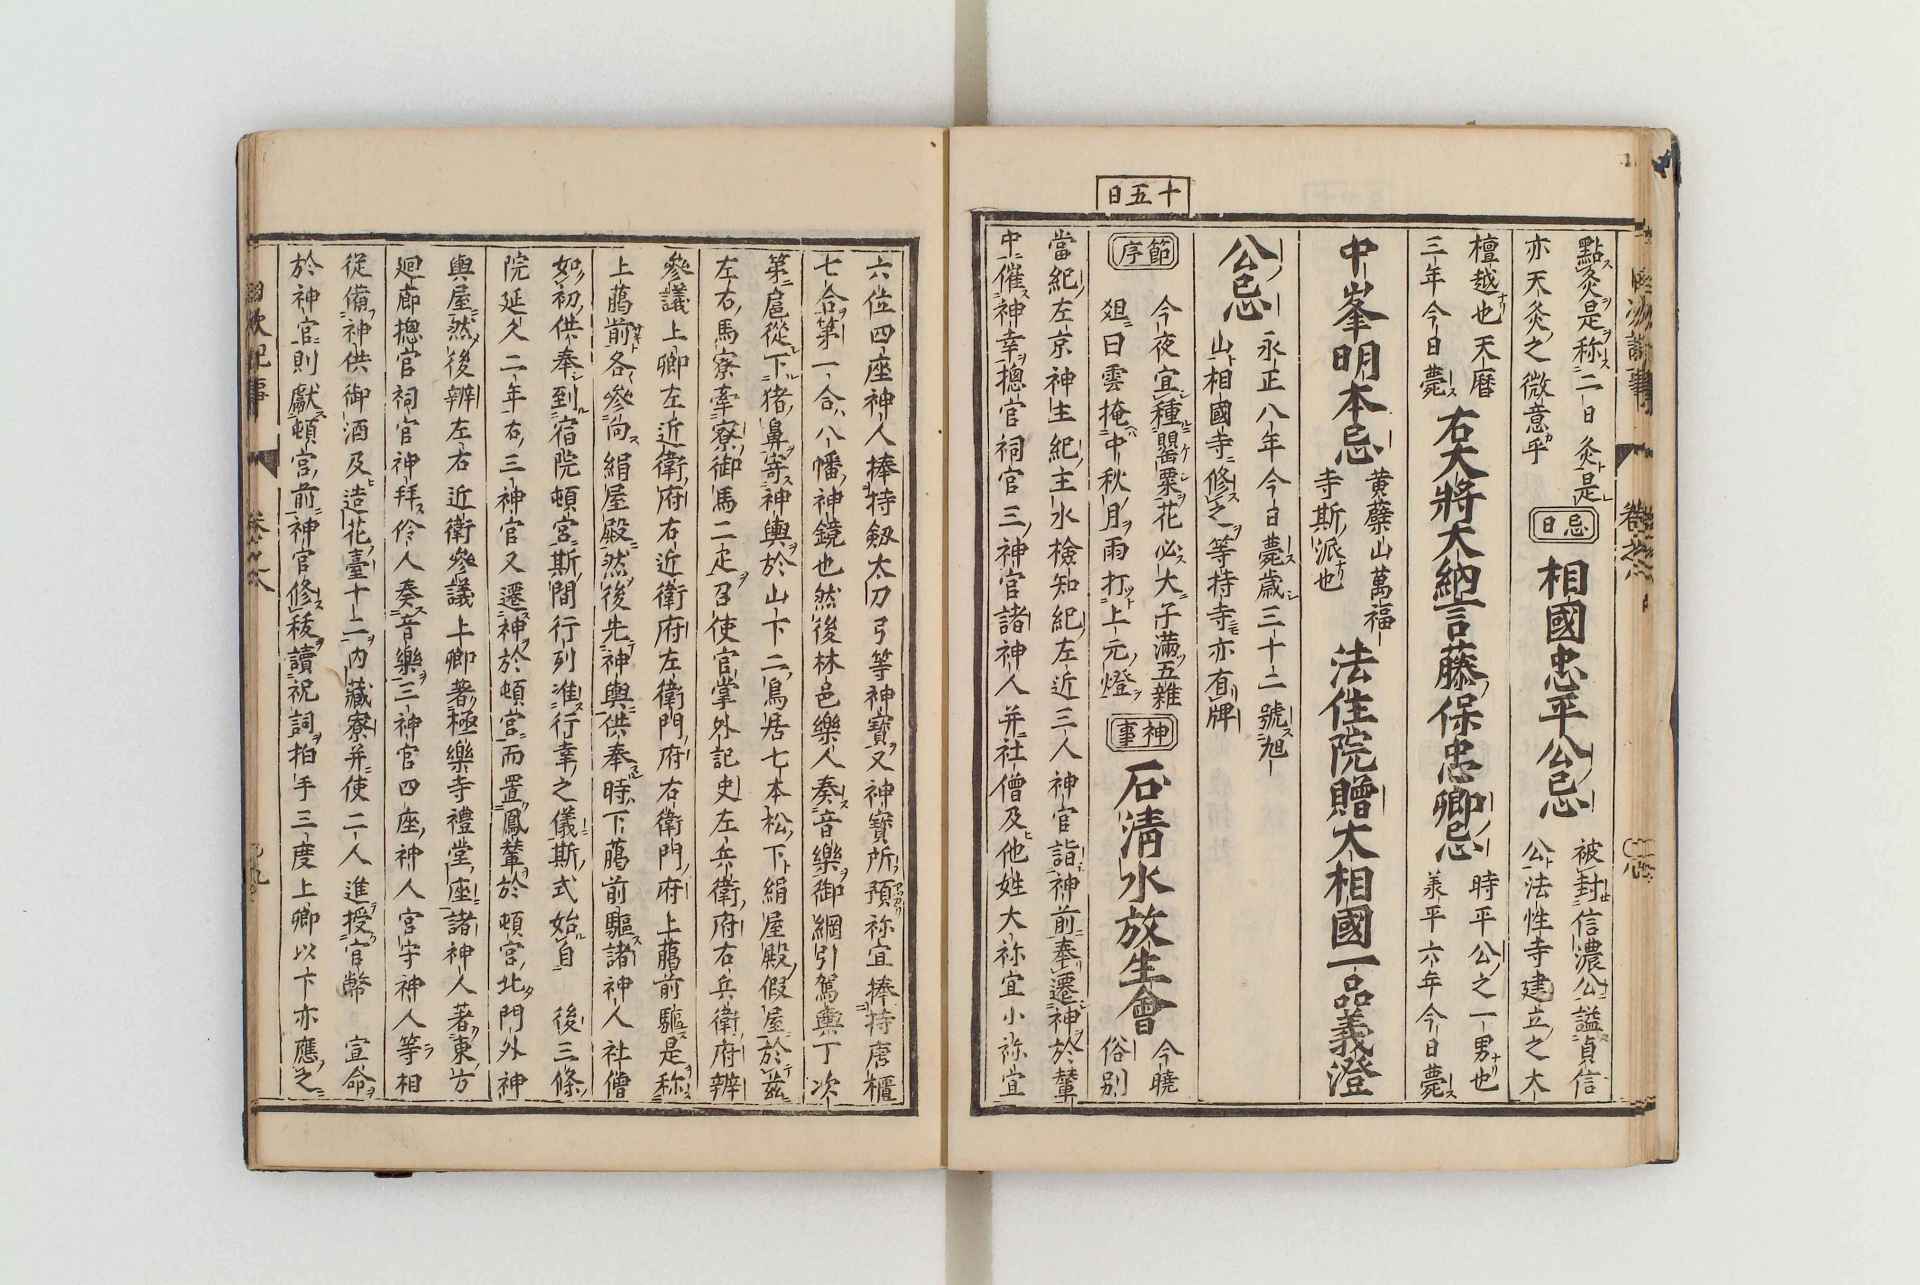 點灸是称二日灸是
亦天灸之微意乎
忌日
相國忠平公忌
被封信濃公謚貞信
公法性寺建立之大
檀越也天暦
三年今日薨
右大將大納言藤保忠卿忌
時平公之一男也
承平六年今日薨
中峯明本忌
黄蘗山萬福
寺斯派也
法住院贈大相國一品義澄
公忌
永正八年今日薨歳三十二號旭
山相國寺修之等持寺亦有牌
十五日
節序
今夜宜種罌粟花必大子滿五雜
爼曰雲掩中秋月雨打上元燈
神事
石清水放生會
今曉
俗別
當紀左京神主紀主水檢知紀左近三人神官詣神前奉遷神於輦
中催神幸摠官祠官三神官諸神人并社僧及他姓大祢宜小祢宜
六位四座神人捧持剱太刀弓等神寶又神寶所預祢宜捧持唐櫃
七合第一合八幡神鏡也然後林邑樂人奏音樂御綱引駕輿丁次
第扈從下猪鼻寄神輿於山下二鳥居七本松下絹屋殿假屋於茲
左右馬寮牽寮御馬二疋召使官掌外記史左兵衛府右兵衛府辨
參議上卿左近衛府右近衛府左衛門府右衛門府上﨟前驅是称
上﨟前各參向絹屋殿然後先神輿供奉時下﨟前驅諸神人社僧
如初供奉到宿院頓宮斯間行列准行幸之儀斯式始自 後三條
院延久二年右三神官又遷神於頓宮而置鳳輦於頓宮北門外神
輿屋然後辨左右近衛參議上卿著極樂寺禮堂座諸神人著東方
廻廊摠官祠官神拜伶人奏音樂三神官四座神人宮守神人等相
從備神供御酒及造花臺十二内藏寮并使二人進授官幣 宣命
於神官則獻頓宮前神官修祓讀祝詞拍手三度上卿以下亦應之